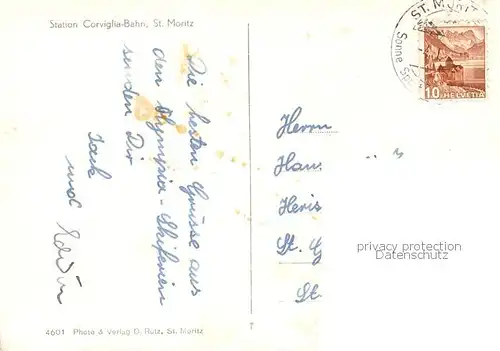 Station Corviglia-Bahn, St. Moritz
Die besten Grüsse aus
den Olympia-Skiferien
senden Dir
Jack
und
4601 Photo & Verlag O. Rutz, St. Moritz
ST. MORITZ
Sonne
10 HELVETIA
Herrn
Hans
St.
St.
privacy protection
Datenschutz